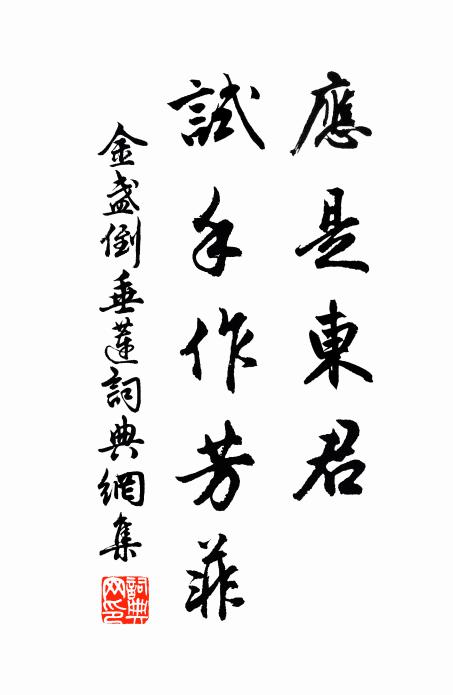 應是東君
試手作芳菲
金盞倒垂蓮詞典網集
詞典網印